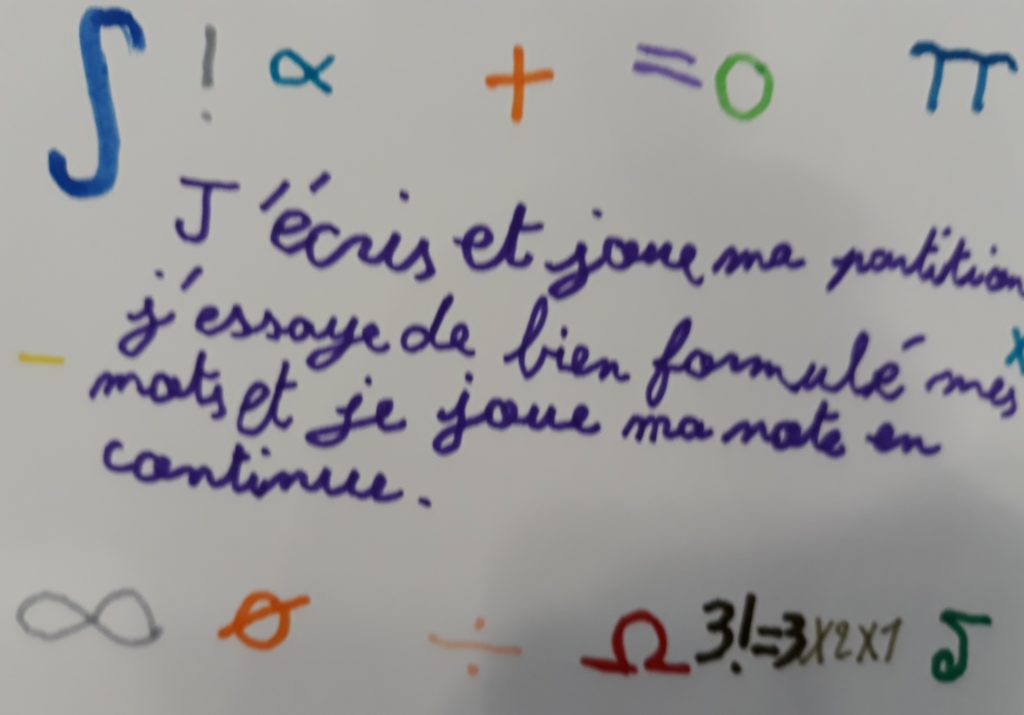 ∫ ! α + = 0 π
J'écris et joue ma partition
j'essaye de bien formulé mes
- x
mots et je joue ma note en
continue.
∞ ø ÷ Ω 3!=3x2x1 δ